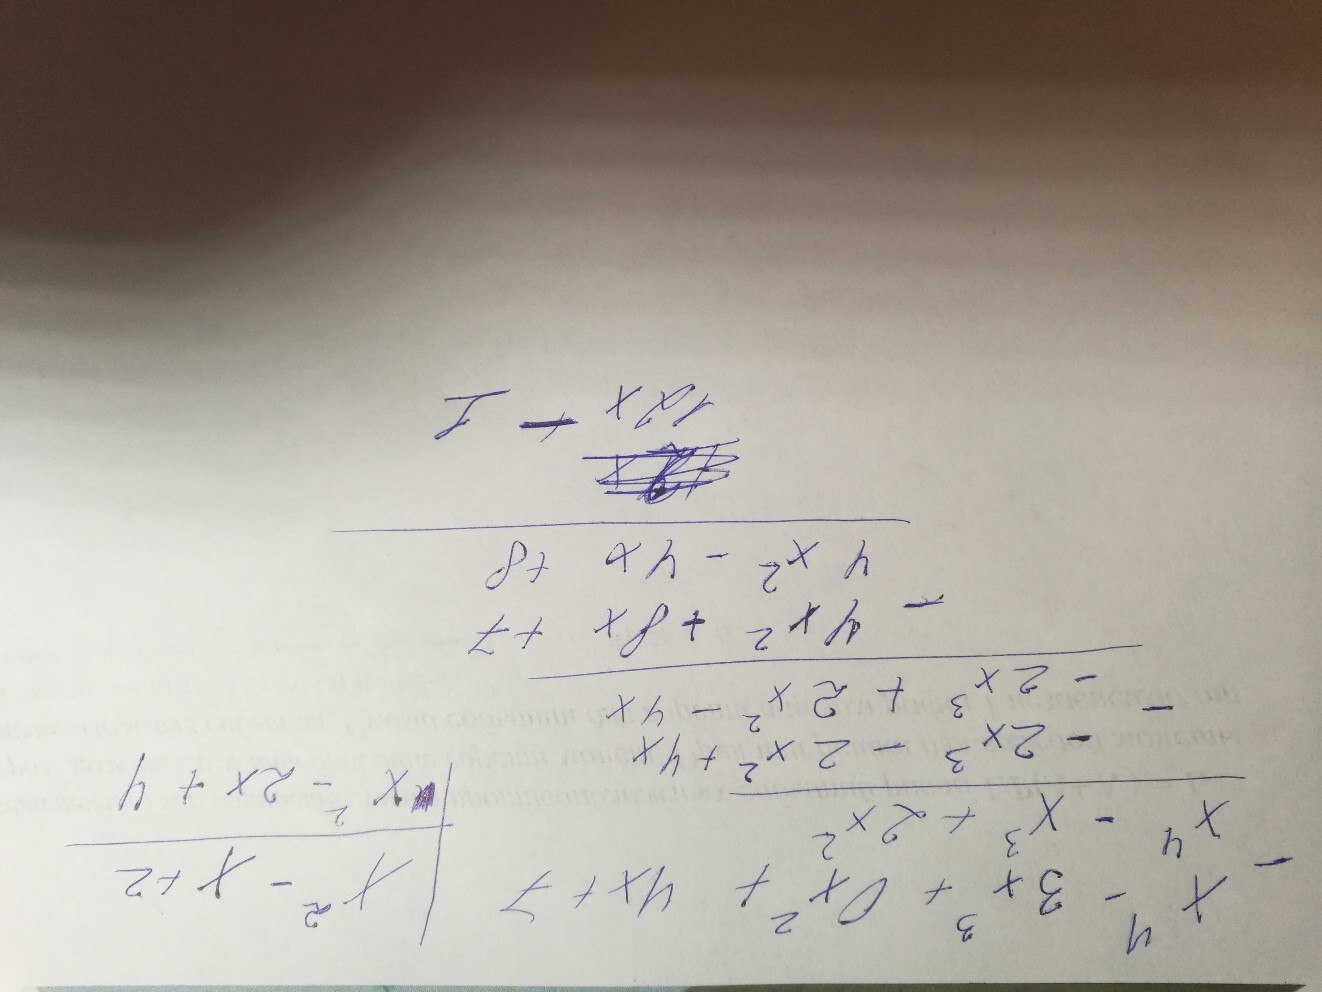 x⁴ - 3x³ + 0x² + 4x + 7 | x² - x + 2
x⁴ - x³ + 2x² | x² - 2x + 4
- 2x³ - 2x² + 4x
- 2x³ + 2x² - 4x
4x² + 8x + 7
4x² - 4x + 8
12x - 1